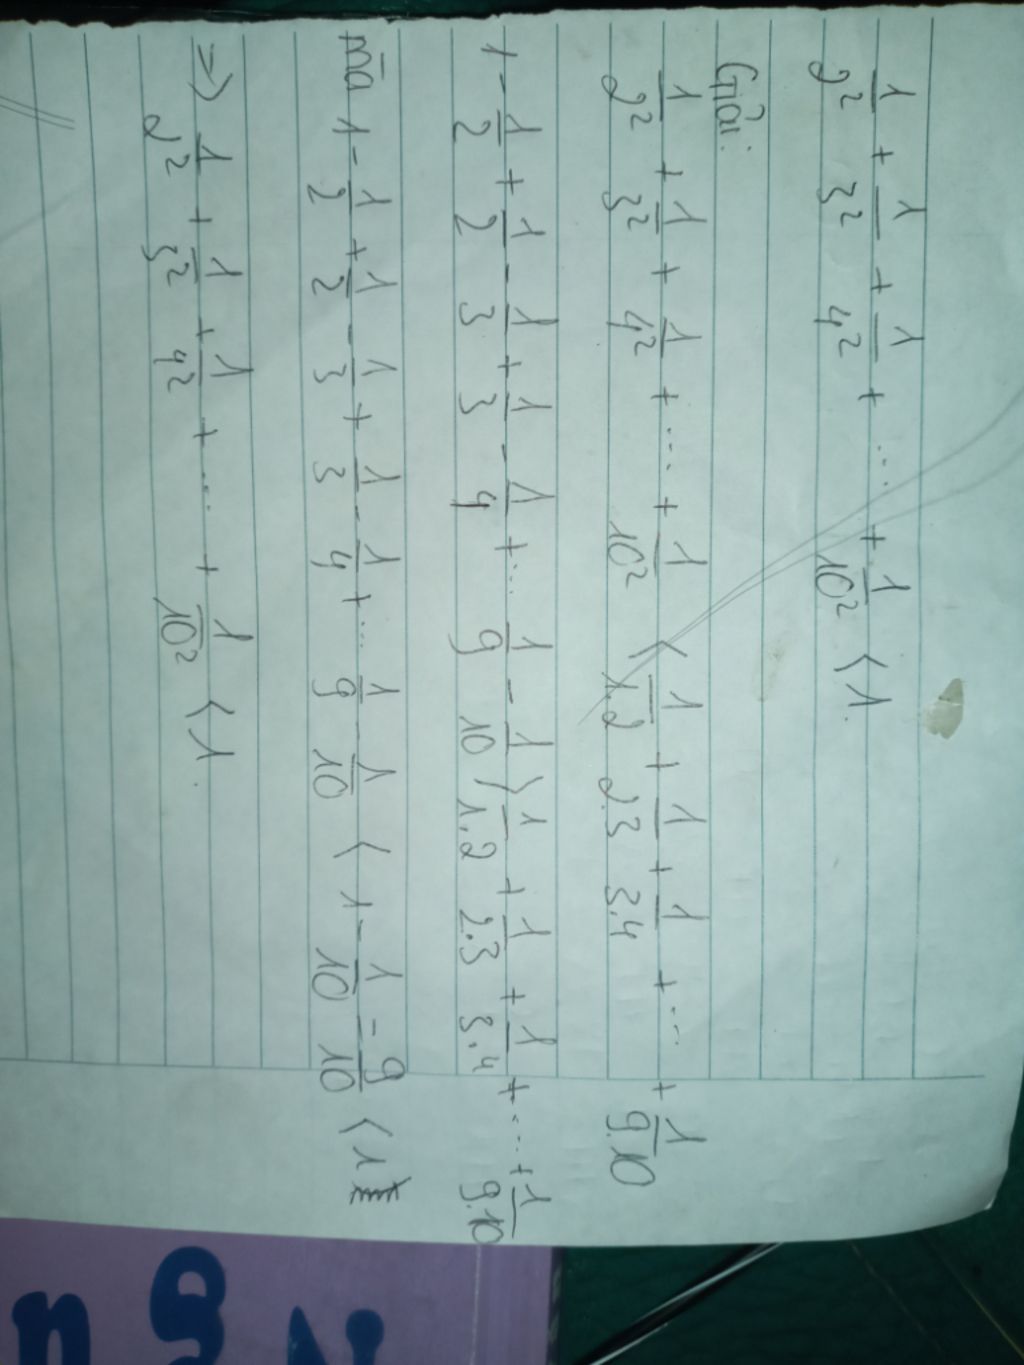 1/2² + 1/3² + 1/4² + ... + 1/10² < 1.
Giải:
1/2² + 1/3² + 1/4² + ... + 1/10² < 1/1.2 + 1/2.3 + 1/3.4 + ... + 1/9.10
1 - 1/2 + 1/2 - 1/3 + 1/3 - 1/4 + ... 1/9 - 1/10 > 1/1.2 + 1/2.3 + 1/3.4 + ... + 1/9.10
mà 1 - 1/2 + 1/2 - 1/3 + 1/3 - 1/4 + ... 1/9 - 1/10 < 1 - 1/10 = 9/10 < 1
=> 1/2² + 1/3² + 1/4² + ... + 1/10² < 1.